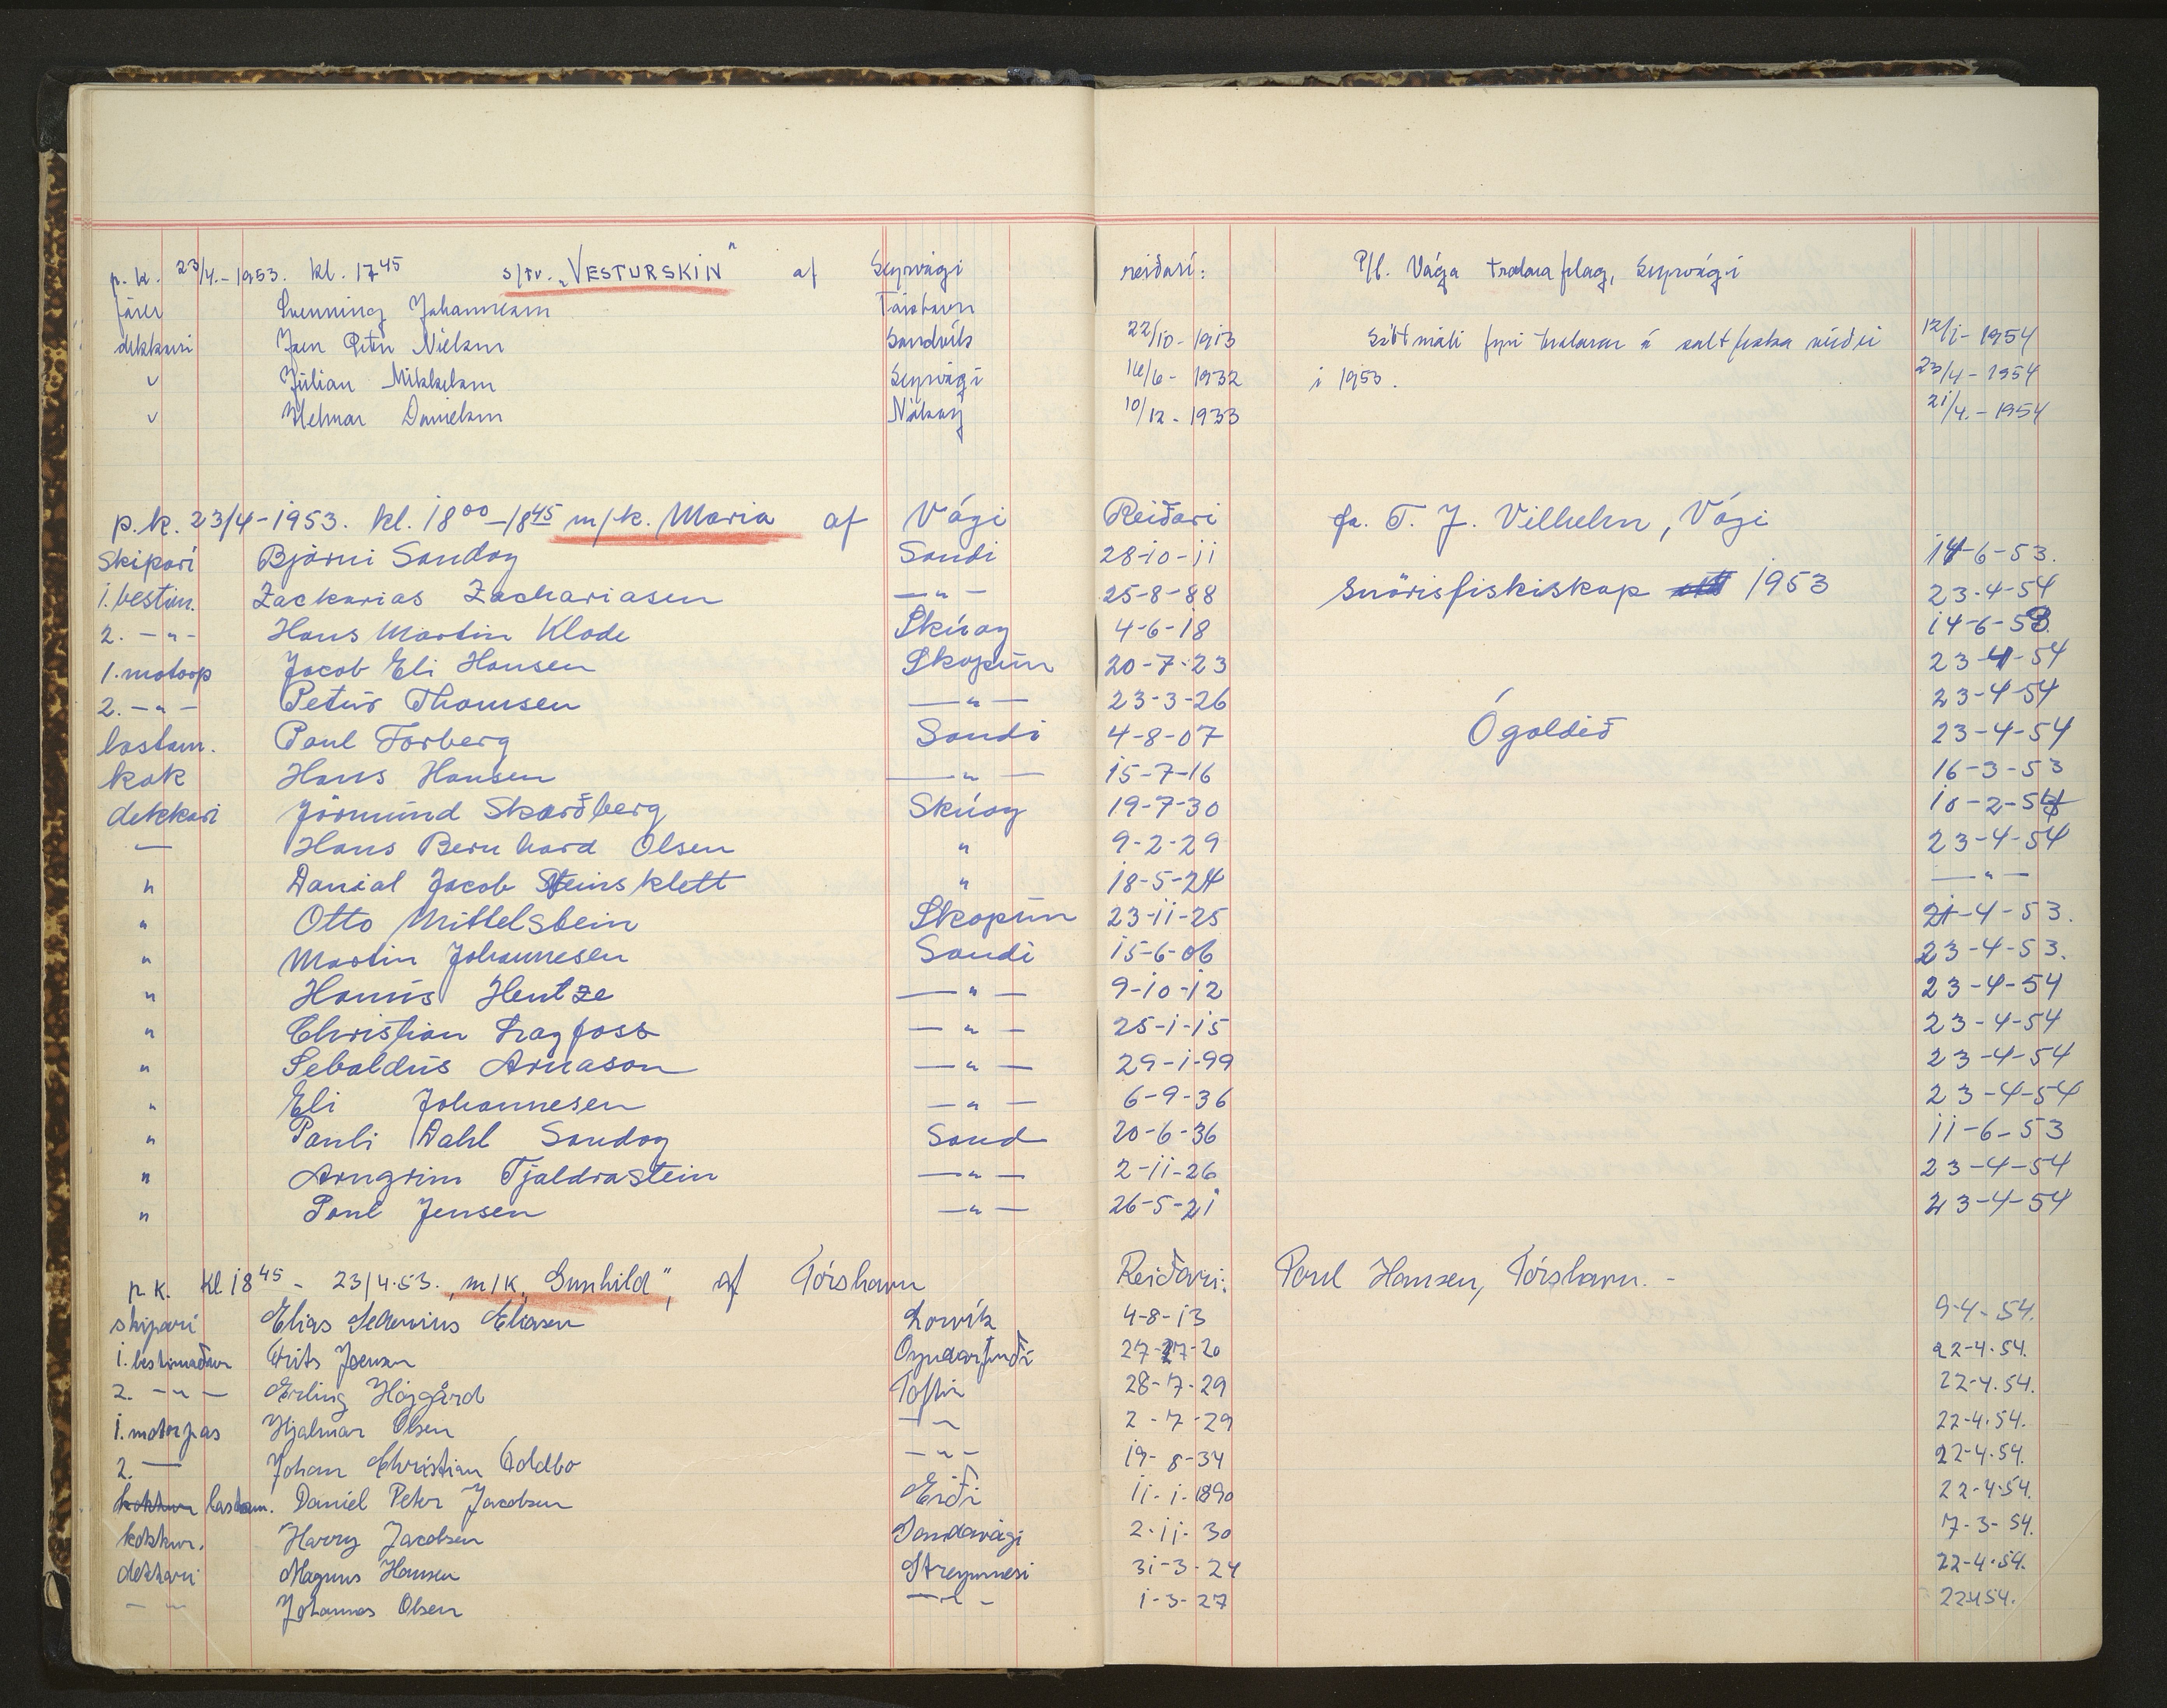 p. k. 23/4.-1953. kl. 17 45 s/tr. „VESTURSKIN" af Sørvági reiðari: P/f. Vága trolara felag, Sørvági
Svenning Johannesen Tórshavn
dekkari Joen Peter Nielsen Sandvík 22/10-1913 Sáttmáli fyri trolarar á salt fiska veiði 12/1-1954
" Júlian Mikkelsen Sørvági 16/6-1932 i 1953. 23/4-1954
" Helmar Danielsen Nólsoy 10/12-1933 21/4.-1954
p.k. 23/4-1953. kl. 18 00 - 18 45 m/k. Maria af Vági Reiðari fa. T. J. Vilhelm, Vági
Skipari Bjørni Sandoy Sandi 28-10-11 14-6-53.
1. bestm. Zackarias Zachariasen —"— 25-8-88 Snørisfiskiskap 1953 23-4-54
2. -"- Hans Martin Klode Skúoy 4-6-18 14-6-53
1. motorp Jacob Eli Hansen Skopun 20-7-23 23-4-54
2. -"- Petur Thomsen —"— 23-3-26 23-4-54
lastam. Poul Torberg Sandi 4-8-07 Ógoldið 23-4-54
kok Hans Hansen —"— 15-7-16 16-3-53
dekkari Jørmund Skarðberg Skúoy 19-7-30 10-2-54
— Hans Bernhard Olsen " 9-2-29 23-4-54
" Danial Jacob Steinsklett " 18-5-24 —"—
" Otto Mittelstein Skopun 23-11-25 21-4-53.
" Martin Johannesen Sandi 15-6-06 23-4-53.
" Hanus Hentze —"— 9-10-12 23-4-54
" Christian Dragfoss —"— 25-1-15 23-4-54
" Sebaldus Arnason —"— 29-1-99 23-4-54
" Eli Johannesen —"— 6-9-36 23-4-54
" Pauli Dahl Sandoy Sand 20-6-36 11-6-53
" Arngrim Tjaldrastein —"— 2-11-26 23-4-54
" Poul Jensen —"— 26-5-21 23-4-54
p. k. kl 18 45 - 23/4.53. m/k „Gunhild", af Tórshavn Reiðari: Poul Hansen, Tórshavn. -
skipari Elias Eliasen Lorvík 4-8-13 9-4-54.
1. bestimaður Frits Joensen Oyndarfirði 27-7-20 22-4-54.
2. -"- Erling Højgård Toftir 28-7-29 22-4.54.
1. motorpas Hjalmar Olsen —"— 2-7-29 22-4.54.
2. — Johan Christian Toldbo -"- 19-8-34 22-4.54.
lastam. Daniel Peter Jacobsen Eiði 11-1-1890 22-4-54.
kokkur. Harry Jacobsen Sandavági 2-11-30 7-3-54.
dekkari Magnus Hansen Streymnesi 31-3-24 22-4.54.
-"- Johannes Olsen —"— 1-3-27 22454.